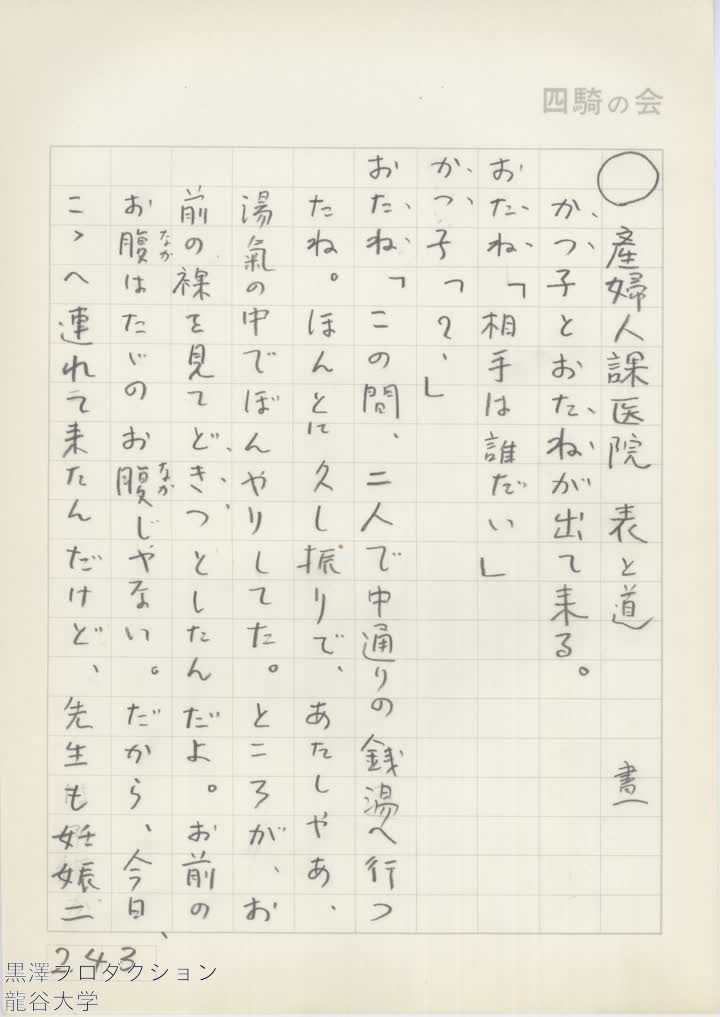 四騎の会
○ 産婦人課医院 表と道 書一
かつ子とおたねが出て来る。
おたね「相手は誰だい」
かつ子「？、」
おたね「この間、二人で中通りの銭湯へ行つ
たね。ほんとに久し振りで、あたしやあ、
湯氣の中でぼんやりしてた。ところが、お
前の裸を見てどきつとしたんだよ。お前の
お腹はたゞのお腹じやない。だから、今日、
なか なか
こゝへ連れて来たんだけど、先生も妊娠二
243
黒澤プロダクション
龍谷大学